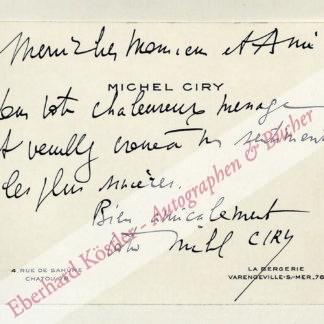 Merci cher Monsieur et Ami
MICHEL CIRY
pour votre chaleureux message
et veuillez croire à mes sentiments
les plus sincères.
Bien amicalement
votre Michel CIRY
4 RUE DE SAHÜNE
CHATOU-78
LA BERGERIE
VARENGEVILLE-S/-MER, 76
Eberhard Köstler - Autographen & Bücher